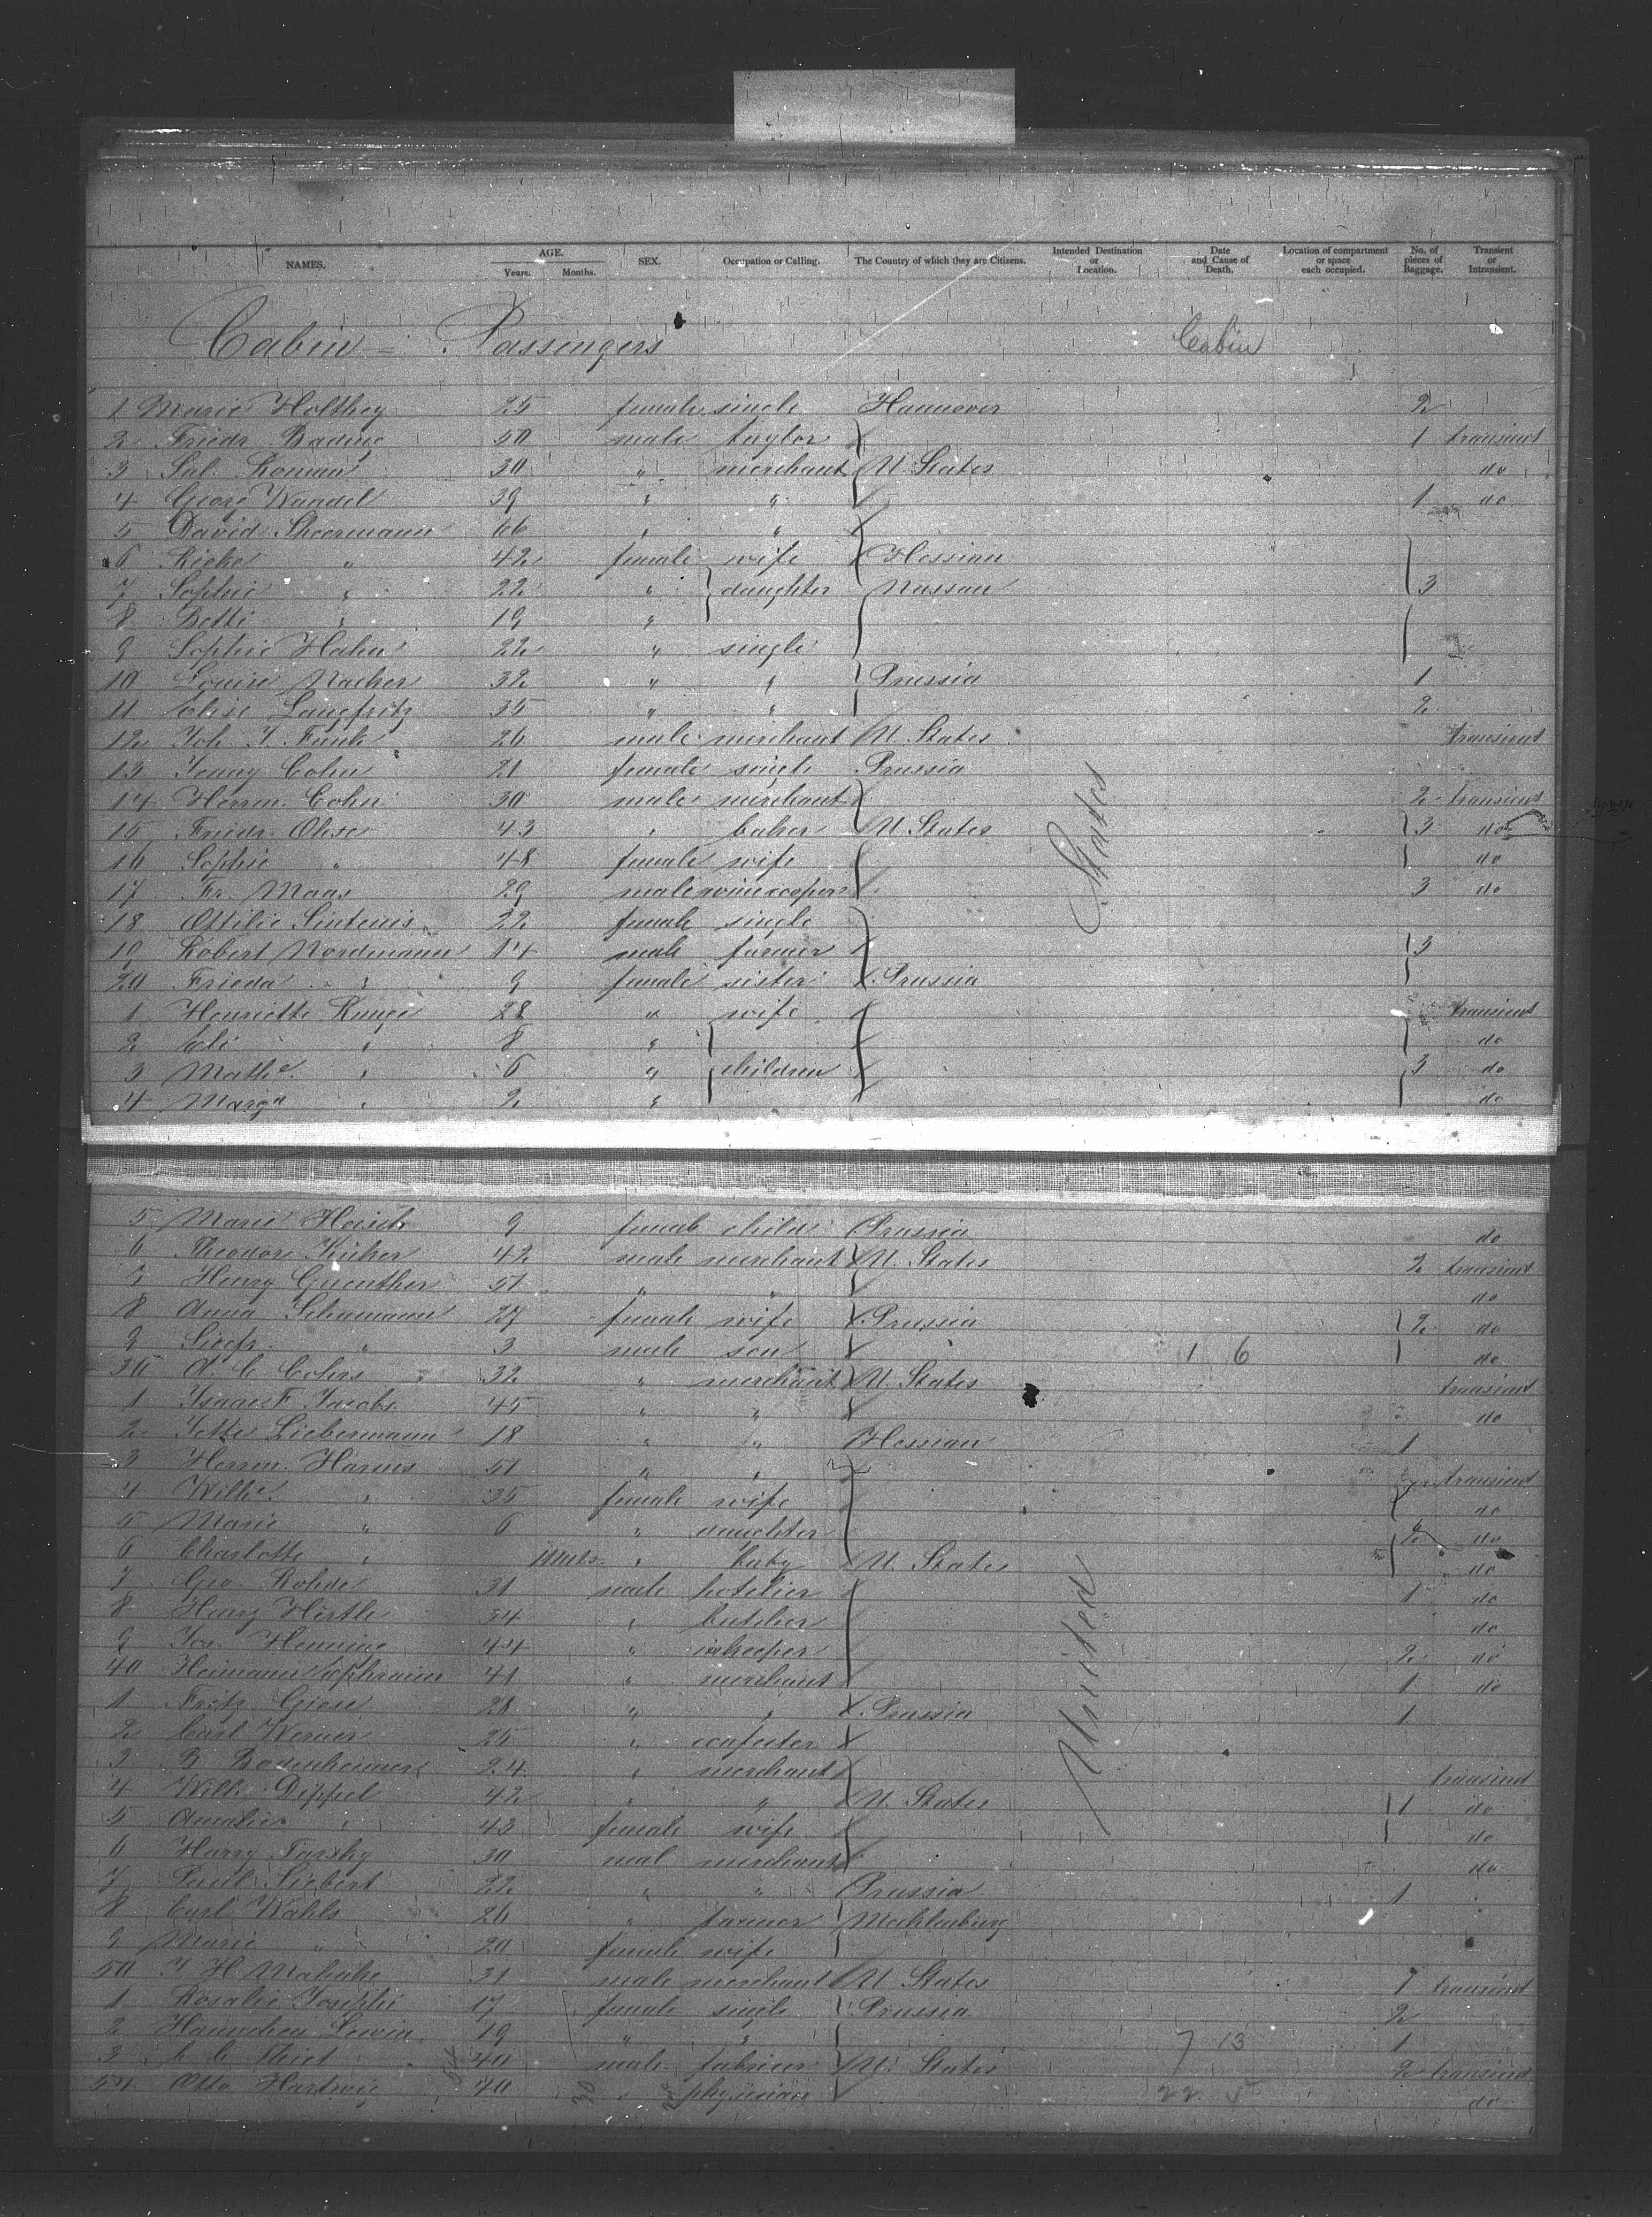 NAMES. AGE. Years. Months. SEX. Occupation or Calling. The Country of which they are Citizens. Intended Destination or Location. Date and Cause of Death. Location of compartment or space each occupied. No. of pieces of Baggage. Transient or Intransient.
Cabin = Passengers Cabin
1 Marie Holthey 25 female single Hannover 2
2 Friedr. Bading 50 male taylor 1 transient
3 Sal. Roman 30 " merchant U. States do
4 Georg Wandel 39 " " 1 do
5 David Sheermann 66 " "
6 Rieke " 42 female wife Hessian
7 Sophie " 22 " daughter Nassau 3
8 Betti " 19 "
9 Sophie Hahn 22 " single
10 Louise Nacher 32 " " Prussia 1
11 Elise Langfritz 35 " " 2
12 Joh. J. Funk 26 male merchant U. States transient
13 Jenny Cohn 21 female single Prussia
14 Herrm. Cohn 30 male merchant 2 transient
15 Friedr. Ohse 43 " baker U. States 3 do
16 Sophie " 48 female wife do
17 Fr. Maas 29 male winecooper 3 do
18 Ottilie Sintenis 22 female single
19 Robert Nordmann 14 male farmer 3
20 Frieda " 9 female sister Prussia
1 Henriette Runge 28 " wife transient
2 " 8 " do
3 Mathe. " 6 " children 3 do
4 Marga " 2 " do
5 Marie 9 female child Prussia do
6 Theodor 42 male merchant U. States 2 transient
7 Henry Guenther 51 " " do
8 Anna Schumann 27 female wife Prussia 2 do
9 " 3 male son 1 6 do
30 A. C. Cohrs 32 " merchant U. States transient
1 Isaac F. Jacobs 45 " " do
2 Jette Liebermann 18 " " Hessian 1
3 Herrm. Harms 51 " " transient
4 Wilhe. " 35 female wife do
5 Marie " 6 " daughter 2 do
6 Charlotte " " baby U. States do
7 Geo. Rohde 31 male hotelier 1 do
8 Henry Hirtle 34 " butcher do
9 Jos. Henning 44 " 2 do
40 Heimann Ephraim 41 " merchant 1 do
1 Fritz Giese 28 " " Prussia 1
2 Carl Werner 25 "
3 B. Bodenheimer 24 " merchant transient
4 Wilh. Dippel 42 " " U. States 1 do
5 Amalie " 43 female wife do
6 Harry 30 mal merchant do
7 Paul Siebert 22 " " Prussia 1
8 Carl Wahls 26 " farmer Mecklenburg
9 Marie " 20 female wife
50 J. H. 31 male merchant U. States 1 transient
1 Rosalie Josephi 17 female single Prussia 2
2 Hannchen Lewin 19 " " 7 13 1
3 40 male U. States 2 transient
54 Otto Hartwig 40 " physician 22 5 do
United States